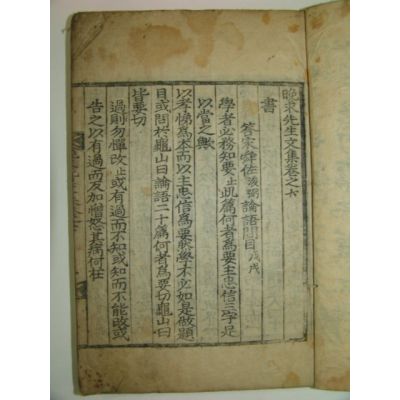 晩求先生文集卷之六
書
答宋舜佐浚弼論語問目戊戌
學者必務知要止此篇何者爲要主忠信三字是
以當之歟
以孝悌為本而以主忠信為要然學不必如是做題
目或問於龜山曰論語二十篇何者為要切龜山曰
皆要切
過則勿憚改止或有過而不知或知而不能改或
告之以有過而反加憎怒其病何在